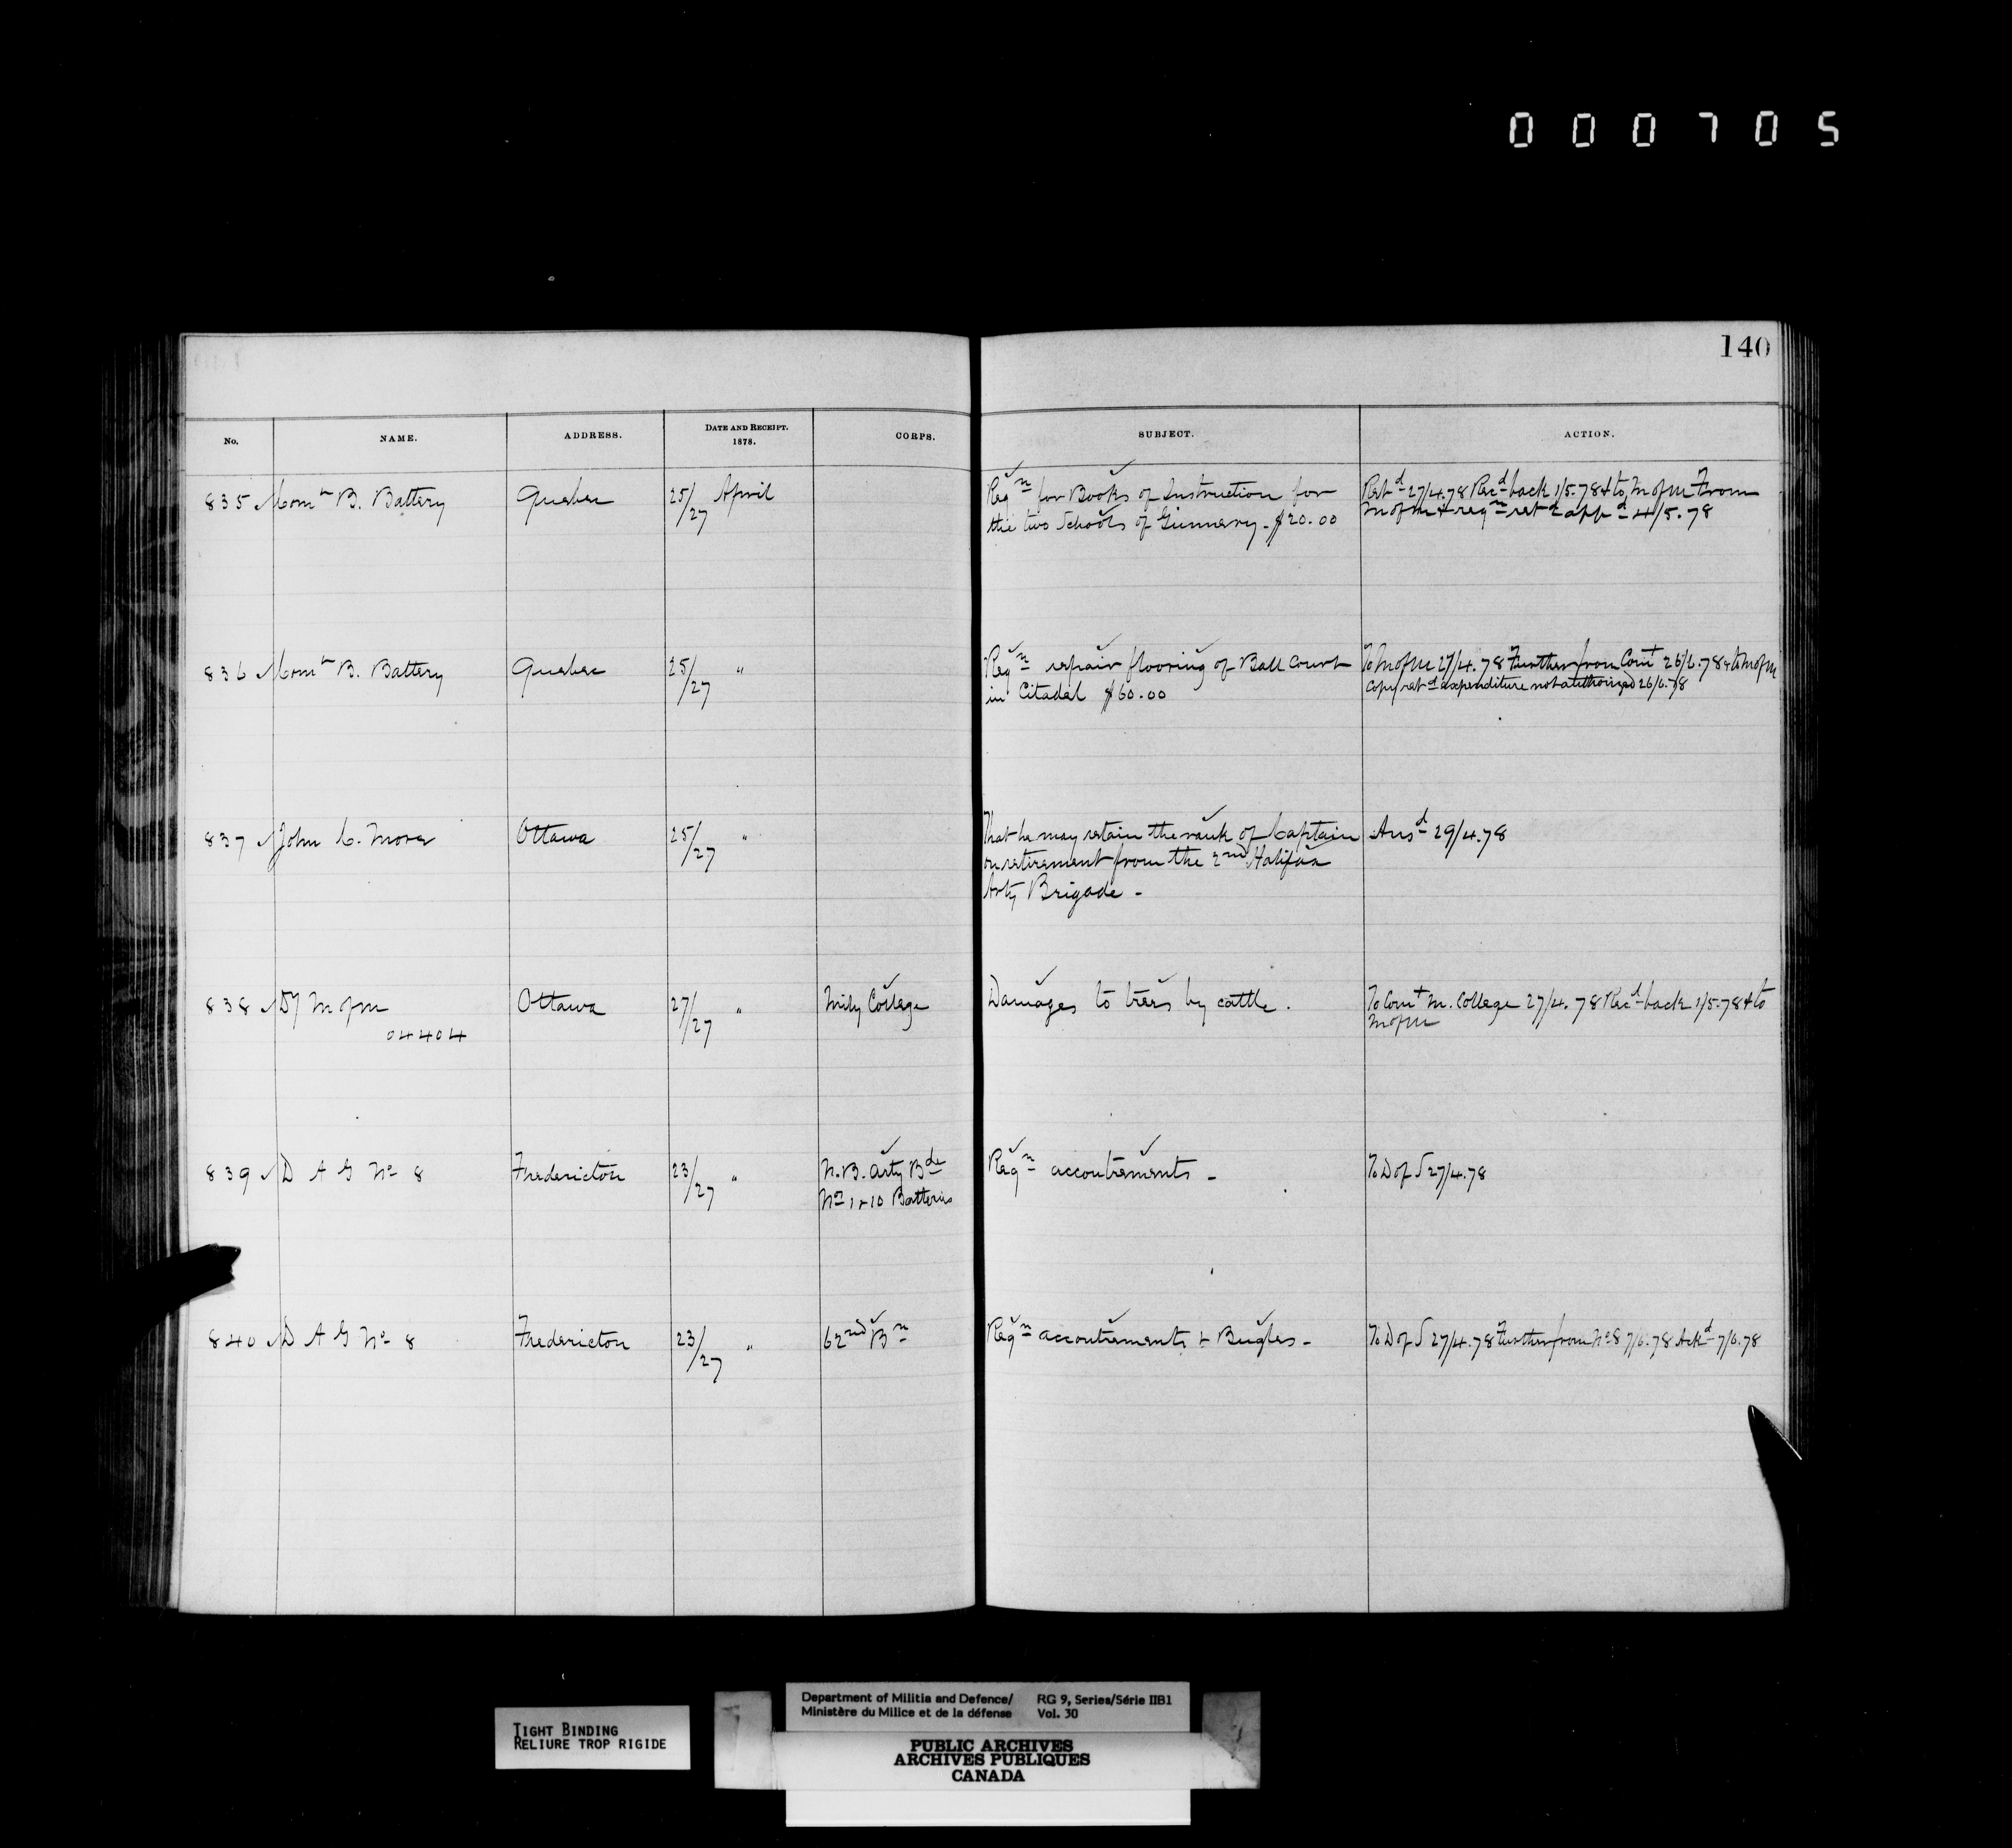 000705
140
No. NAME. ADDRESS. DATE AND RECEIPT. 1878. CORPS. SUBJECT. ACTION.
835 Comt B. Battery Quebec 25/27 April Reqn for Books of Instruction for Retd 27/4.78 Recd back 1/5.78 & to M of M From
the two Schools of Gunnery - $20.00 M of M & reqn retd appd 4/5.78
836 Comt B. Battery Quebec 25/27 " Reqn repair flooring of Ball Court To M of M 27/4.78 Further from Comt 26/6.78 & to M of M
in Citadel $60.00 Copy retd expenditure not authorized 26/6.78
837 John C. Ottawa 25/27 " That he may retain the rank of Captain Ansd 29/4.78
on retirement from the 2nd Halifax
Arty Brigade -
838 Dy M of M Ottawa 27/27 " Mily College Damages to trees by cattle. To Comt M. College 27/4.78 Recd back 1/5.78 & to
04404 M of M
839 D A G No 8 Fredericton 23/27 " N.B. Arty Bde Reqn accoutrements - To D of S 27/4.78
Nos 1 & 10 Batteries
840 D A G No 8 Fredericton 23/27 " 62nd Bn Reqn accoutrements & Bugles - To D of S 27/4.78 Further from No 8 7/6.78 Ackd 7/6.78
TIGHT BINDING
RELIURE TROP RIGIDE
Department of Militia and Defence/ RG 9, Series/Série IIB1
Ministère du Milice et de la défense Vol. 30
PUBLIC ARCHIVES
ARCHIVES PUBLIQUES
CANADA